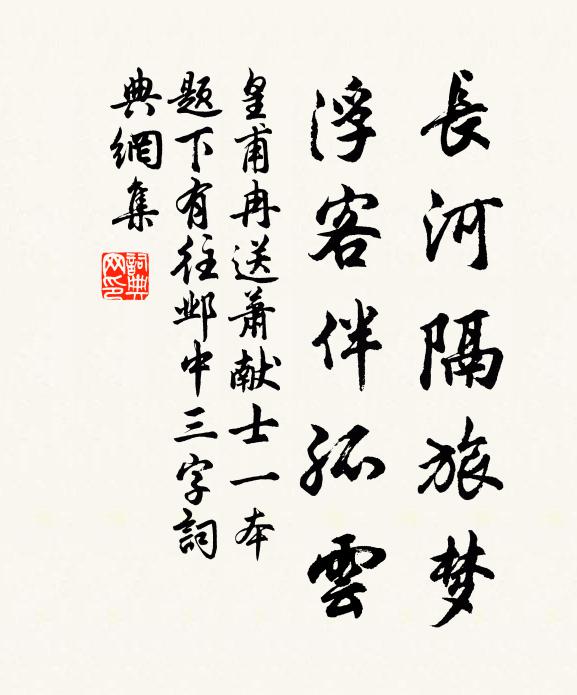 長河隔旅梦
浮客伴孤雲
皇甫冉送萧献士一本
题下有往邺中三字詞
典網集
詞典网印